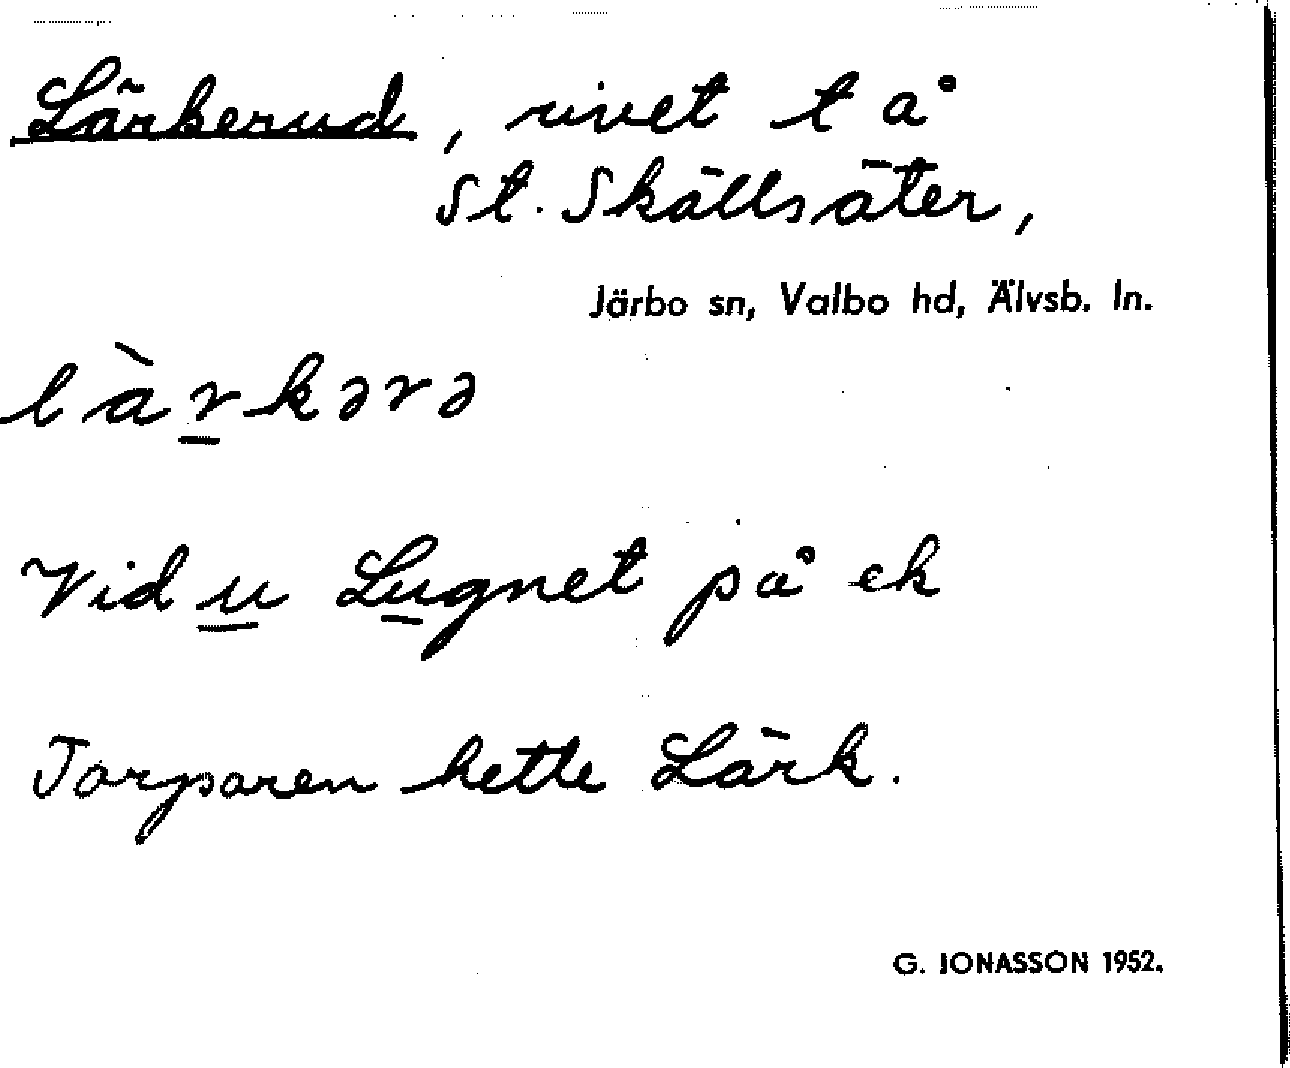 Lärkerud, rivet t å
St. Skällsäter,
Järbo sn, Valbo hd, Älvsb. ln.
là̱rkərə
Vid u Lugnet på ek
Torparen hette Lärk.
G. JONASSON 1952.